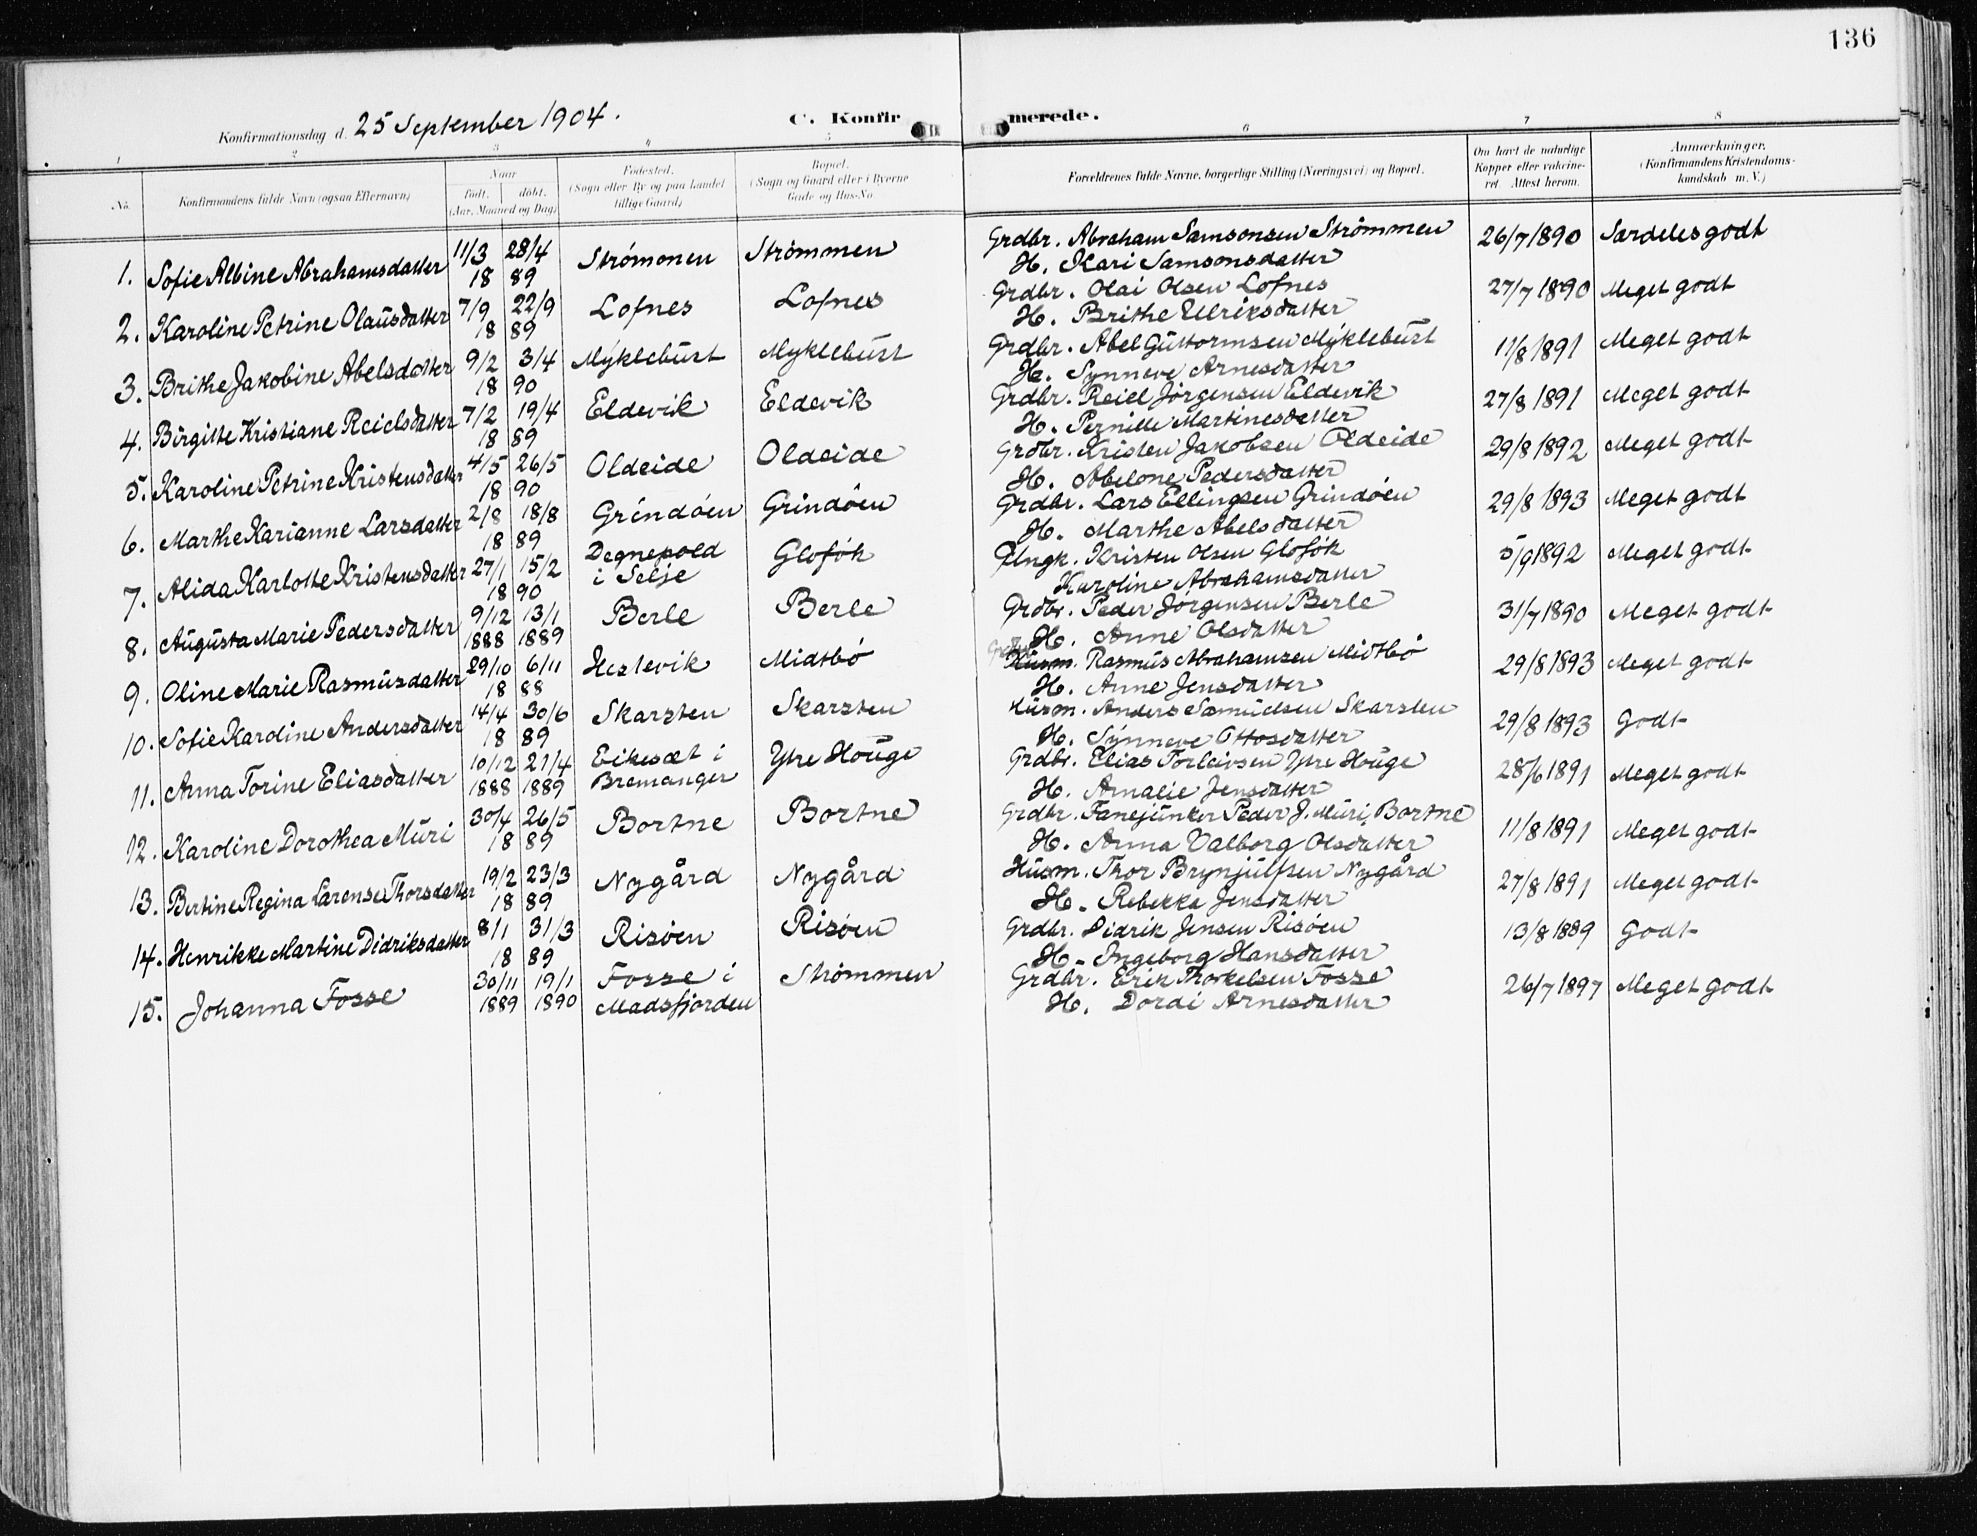 136
Konfirmationsdag d. 25 September 1904.
C. Konfirmerede.
1 2 3 4 5 6 7 8
No. Konfirmandens fulde Navn (ogsaa Efternavn)
Naar født. døbt. (Aar, Maaned og Dag)
Fødested. (Sogn eller By og paa Landet tillige Gaard)
Bopæl. (Sogn og Gaard eller i Byerne Gade og Hus-No.
Forældrenes fulde Navne, borgerlige Stilling (Næringsvei) og Bopæl.
Om havt de naturlige Kopper eller vakcineret. Attest herom.
Anmærkninger. (Konfirmandens Kristendomskundskab m. V.)
1. Sofie Albine Abrahamsdatter 11/3 28/4 1889 Strømmen Strømmen Grdbr. Abraham Samsonsen Strømmen 26/7 1890 Særdeles godt
H. Kari Samsonsdatter
2. Karoline Petrine Olausdatter 7/9 22/9 1889 Lofnes Lofnes Grdbr. Olai Olsen Lofnes 27/7 1890 Meget godt
H. Brithe Ellriksdatter
3. Brithe Jakobine Abelsdatter 9/2 3/4 1890 Myklebust Myklebust Grdbr. Abel Guttormsen Myklebust 11/8 1891 Meget godt
H. Synneve Arnesdatter
4. Birgitte Kristiane Reielsdatter 7/2 19/4 1889 Eldevik Eldevik Grdbr. Reiel Jørgensen Eldevik 27/8 1891 Meget godt
H. Pernille Martinesdatter
5. Karoline Petrine Kristensdatter 4/5 26/5 1890 Oldeide Oldeide Grdbr. Kristen Jakobsen Oldeide 29/8 1892 Meget godt
H. Abelone Pedersdatter
6. Marthe Karianne Larsdatter 2/8 18/8 1889 Grindøen Grindøen Grdbr. Lars Ellingsen Grindøen 29/8 1893 Meget godt
H. Marthe Abelsdatter
7. Alida Karlotte Kristensdatter 27/1 15/2 1890 Degnepold i Selje Gloføk Kristen Olsen Gloføk 5/9 1892 Meget godt
Karoline Abrahamsdatter
8. Augusta Marie Pedersdatter 9/12 1888 13/1 1889 Berle Berle Grdbr. Peder Jørgensen Berle 31/7 1890 Meget godt
H. Anne Olsdatter
9. Oline Marie Rasmusdatter 29/10 6/11 1888 Hestevik Midtbø Husm. Rasmus Abrahamsen Midtbø 29/8 1893 Meget godt
H. Anne Jensdatter
10. Sofie Karoline Andersdatter 14/4 30/6 1889 Skarsten Skarsten Husm. Anders Samuelsen Skarsten 29/8 1893 Godt
H. Synneve Ottosdatter
11. Anna Torine Eliasdatter 10/12 1888 21/4 1889 Eikesæt i Bremanger Ytre Houge Grdbr. Elias Torleivsen Ytre Houge 28/6 1891 Meget godt
H. Amalie Jensdatter
12. Karoline Dorothea Muri 30/4 26/5 1889 Bortne Bortne Grdbr. Fanejunker Peder J. Muri, Bortne 11/8 1891 Meget godt
H. Anna Valborg Olsdatter
13. Bertine Regina Larense Thorsdatter 19/2 23/3 1889 Nygård Nygård Husm. Thor Brynjulfsen Nygård 27/8 1891 Meget godt
H. Rebekka Jensdatter
14. Henrikke Martine Didriksdatter 8/1 31/3 1889 Risøen Risøen Grdbr. Didrik Jensen Risøen 13/8 1889 Godt
H. Ingeborg Hansdatter
15. Johanna Fosse 30/11 1889 19/1 1890 Fosse i Madsfjorden Strømmen Grdbr. Erik Thorkelsen Fosse 26/7 1897 Meget godt
H. Dordi Arnesdatter